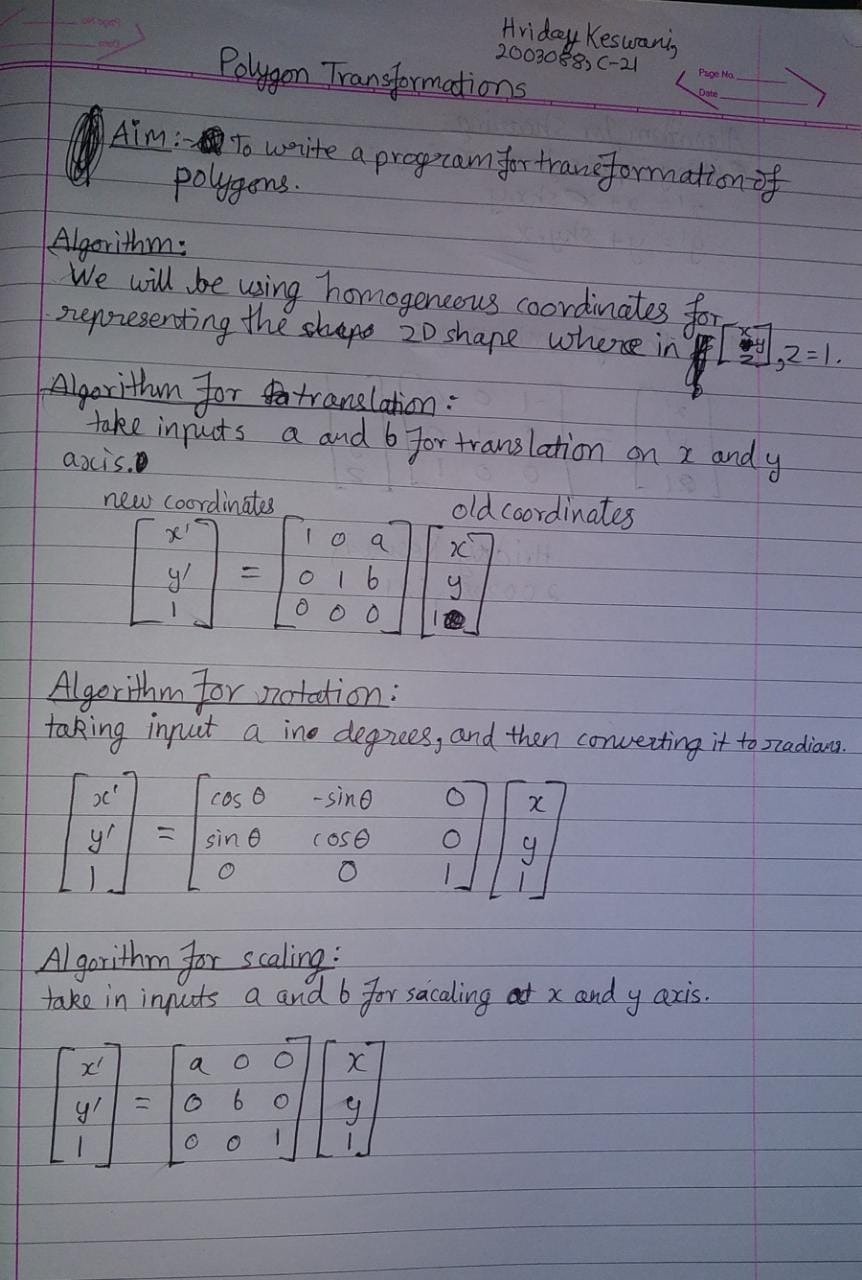 Hriday Keswani,
2003088, C-21
Polygon Transformations
Page No.
Date
Aim:- To write a program for transformation of
polygons.
Algorithm:
We will be using homogeneous coordinates for
representing the shape 2D shape where in [x y z], z=1.
Algorithm for translation:
take inputs a and b for translation on x and y
axis.
new coordinates old coordinates
[x'] = [1 0 a] [x]
[y'] = [0 1 b] [y]
[1] = [0 0 0] [1]
Algorithm for rotation:
taking input a in degrees, and then converting it to radians.
[x'] = [cos θ -sin θ 0] [x]
[y'] = [sin θ cos θ 0] [y]
[1] = [0 0 1] [1]
Algorithm for scaling:
take in inputs a and b for sacaling at x and y axis.
[x'] = [a 0 0] [x]
[y'] = [0 b 0] [y]
[1] = [0 0 1] [1]